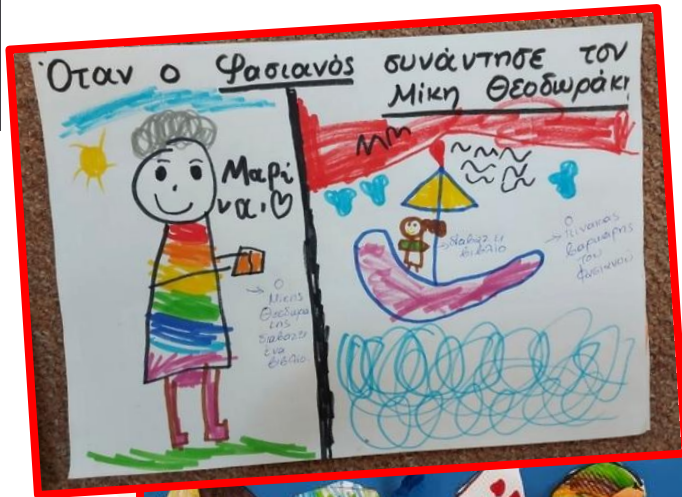 Όταν ο Φασιανός συνάντησε τον
Μίκη Θεοδωράκη
Μαρί
να
→ Ο
Μίκης
Θεοδωρά
κης
διαβάζει
ένα
βιβλίο.
→ διαβάζει
βιβλίο
→ Ο
πίνακας
βαρκάρης
του
Φασιανού